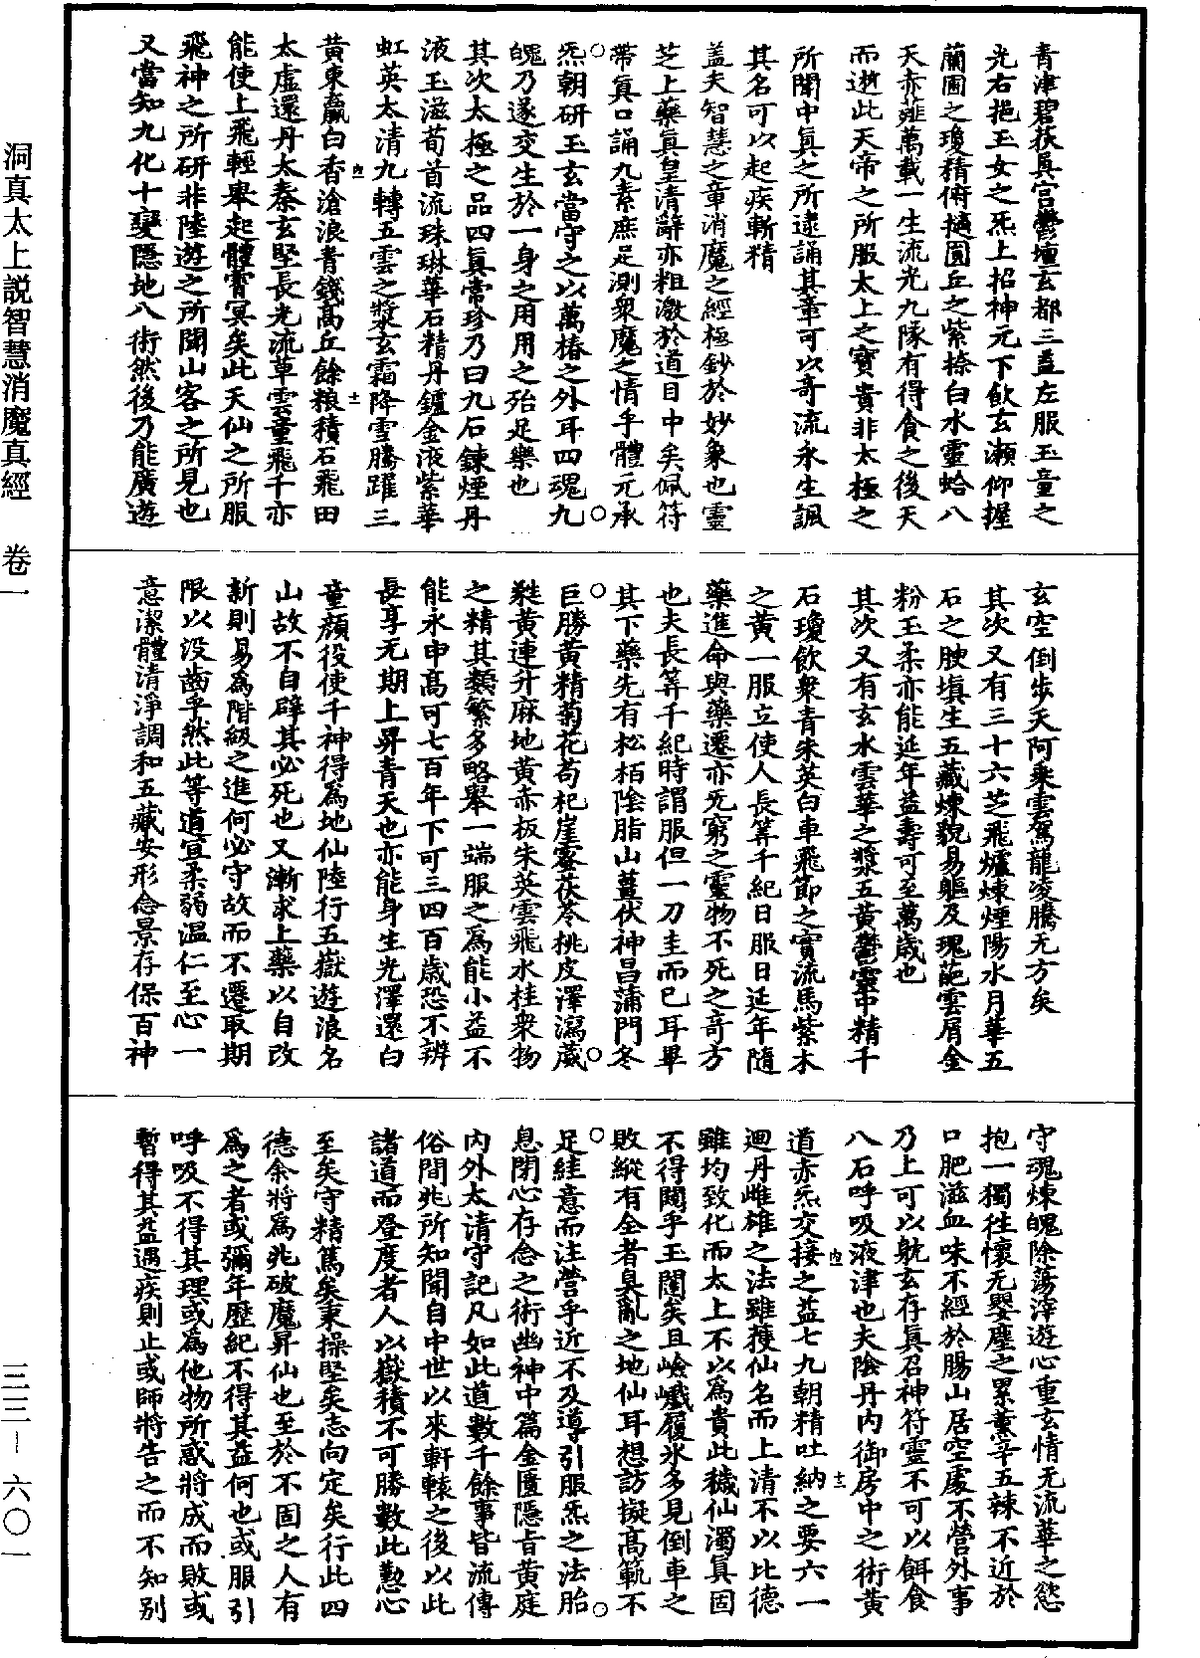 青津碧荻眞宮鬱壇玄都三蓋左服玉童之
光右挹玉女之炁上招神元下飲玄瀨仰握
蘭圃之瓊精俯擿圓丘之紫柰白水靈蛤八
天赤薤萬載一生流光九隊有得食之後天
而逝此天帝之所服太上之寶貴非太極之
所聞中真之所逮誦其章可以奇流永生諷
其名可以起疾斬精
蓋夫智慧之章消魔之經極鈔於妙象也靈
芝上藥真皇清辭亦粗激於道目中矣佩符
帶真口誦九素庶足測衆魔之情乎體元承
炁朝研玉玄當守之以萬椿之外耳四魂九
魄乃遂交生於一身之用用之殆足樂也
其次太極之品四真常珍乃曰九石鍊煙丹
液玉滋荀首流珠琳華石精丹鑪金液紫華
虹英太清九轉五雲之漿玄霜降雪騰躍三
黃東瀛白香滄浪青錢高丘餘粮積石飛田
太虛還丹太秦玄堅長光流草雲童飛千亦
能使上飛輕舉起體霄冥矣此天仙之所服
飛神之所研非陸遊之所聞山客之所見也
又當知九化十變隱地八術然後乃能廣遊
玄空倒步天阿乘雲駕龍凌騰无方矣
其次又有三十六芝飛爐煉煙陽水月華五
石之腴填生五藏煉貌易軀及瑰葩雲屑金
粉玉柔亦能延年益壽可至萬歲也
其次又有玄水雲華之漿五黃鬱靈中精千
石瓊飲衆青朱英白車飛節之實流馬紫木
之黃一服立使人長筭千紀日服日延年隨
藥進命與藥遷亦无窮之靈物不死之奇方
也夫長筭千紀時謂服但一刀圭而已耳畢
其下藥先有松栢陰脂山薑伏神昌蒲門冬
巨勝黃精菊花苟杞崖蜜茯苓桃皮澤瀉葳
蕤黃連升麻地黃赤板朱英雲飛水桂衆物
之精其類繁多略舉一端服之爲能小益不
能永申高可七百年下可三四百歲恐不辨
長享无期上昇青天也亦能身生光澤還白
童顏役使千神得爲地仙陸行五嶽遊浪名
山故不自辟其必死也又漸求上藥以自改
新則易爲階級之進何必守故而不遷取期
限以没齒乎然此等道宜柔弱温仁至心一
意潔體清淨調和五藏安形念景存保百神
守魂煉魄除蕩滓遊心重玄情无流華之慾
抱一獨往懷无嬰塵之累薰辛五辣不近於
口肥滋血味不經於腸山居空處不營外事
乃上可以躭玄存真召神符靈不可以餌食
八石呼吸液津也夫陰丹內御房中之術黃
道赤炁交接之益七九朝精吐納之要六一
迴丹雌雄之法雖獲仙名而上清不以比德
雖均致化而太上不以爲貴此穢仙濁真固
不得闚乎玉闈矣且嶮巇履氷多見倒車之
敗縱有全者臭亂之地仙耳想訪擬高範不
足絓意而注營乎近不及導引服炁之法胎
息閉心存念之術幽神中篇金匱隱旨黃庭
內外太清守記凡如此道數千餘事皆流傳
俗間兆所知聞自中世以來軒轅之後以此
諸道而登度者人以嶽積不可勝數此懃心
至矣守精篤矣秉操堅矣志向定矣行此四
德余將爲兆破魔昇仙也至於不固之人有
爲之者或彌年歷紀不得其益何也或服引
呼吸不得其理或爲他物所惑將成而敗或
暫得其益遇疾則止或師將告之而不知別
洞真太上説智慧消魔真經　卷一
三三－六〇一